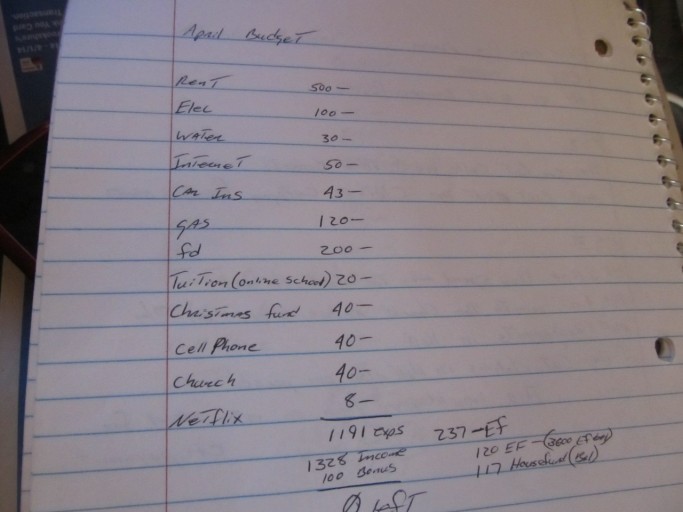 April Budget
Rent 500-
Elec 100-
Water 30-
Internet 50-
Car Ins 43-
gas 120-
fd 200-
Tuition (online school) 20-
Christmas fund 40-
Cell Phone 40-
Church 40-
Netflix 8-
1191 Exps 237-EF
1328 Income 120 EF-(3600
100 Bonus 117 House fund (Bal)
0 Left